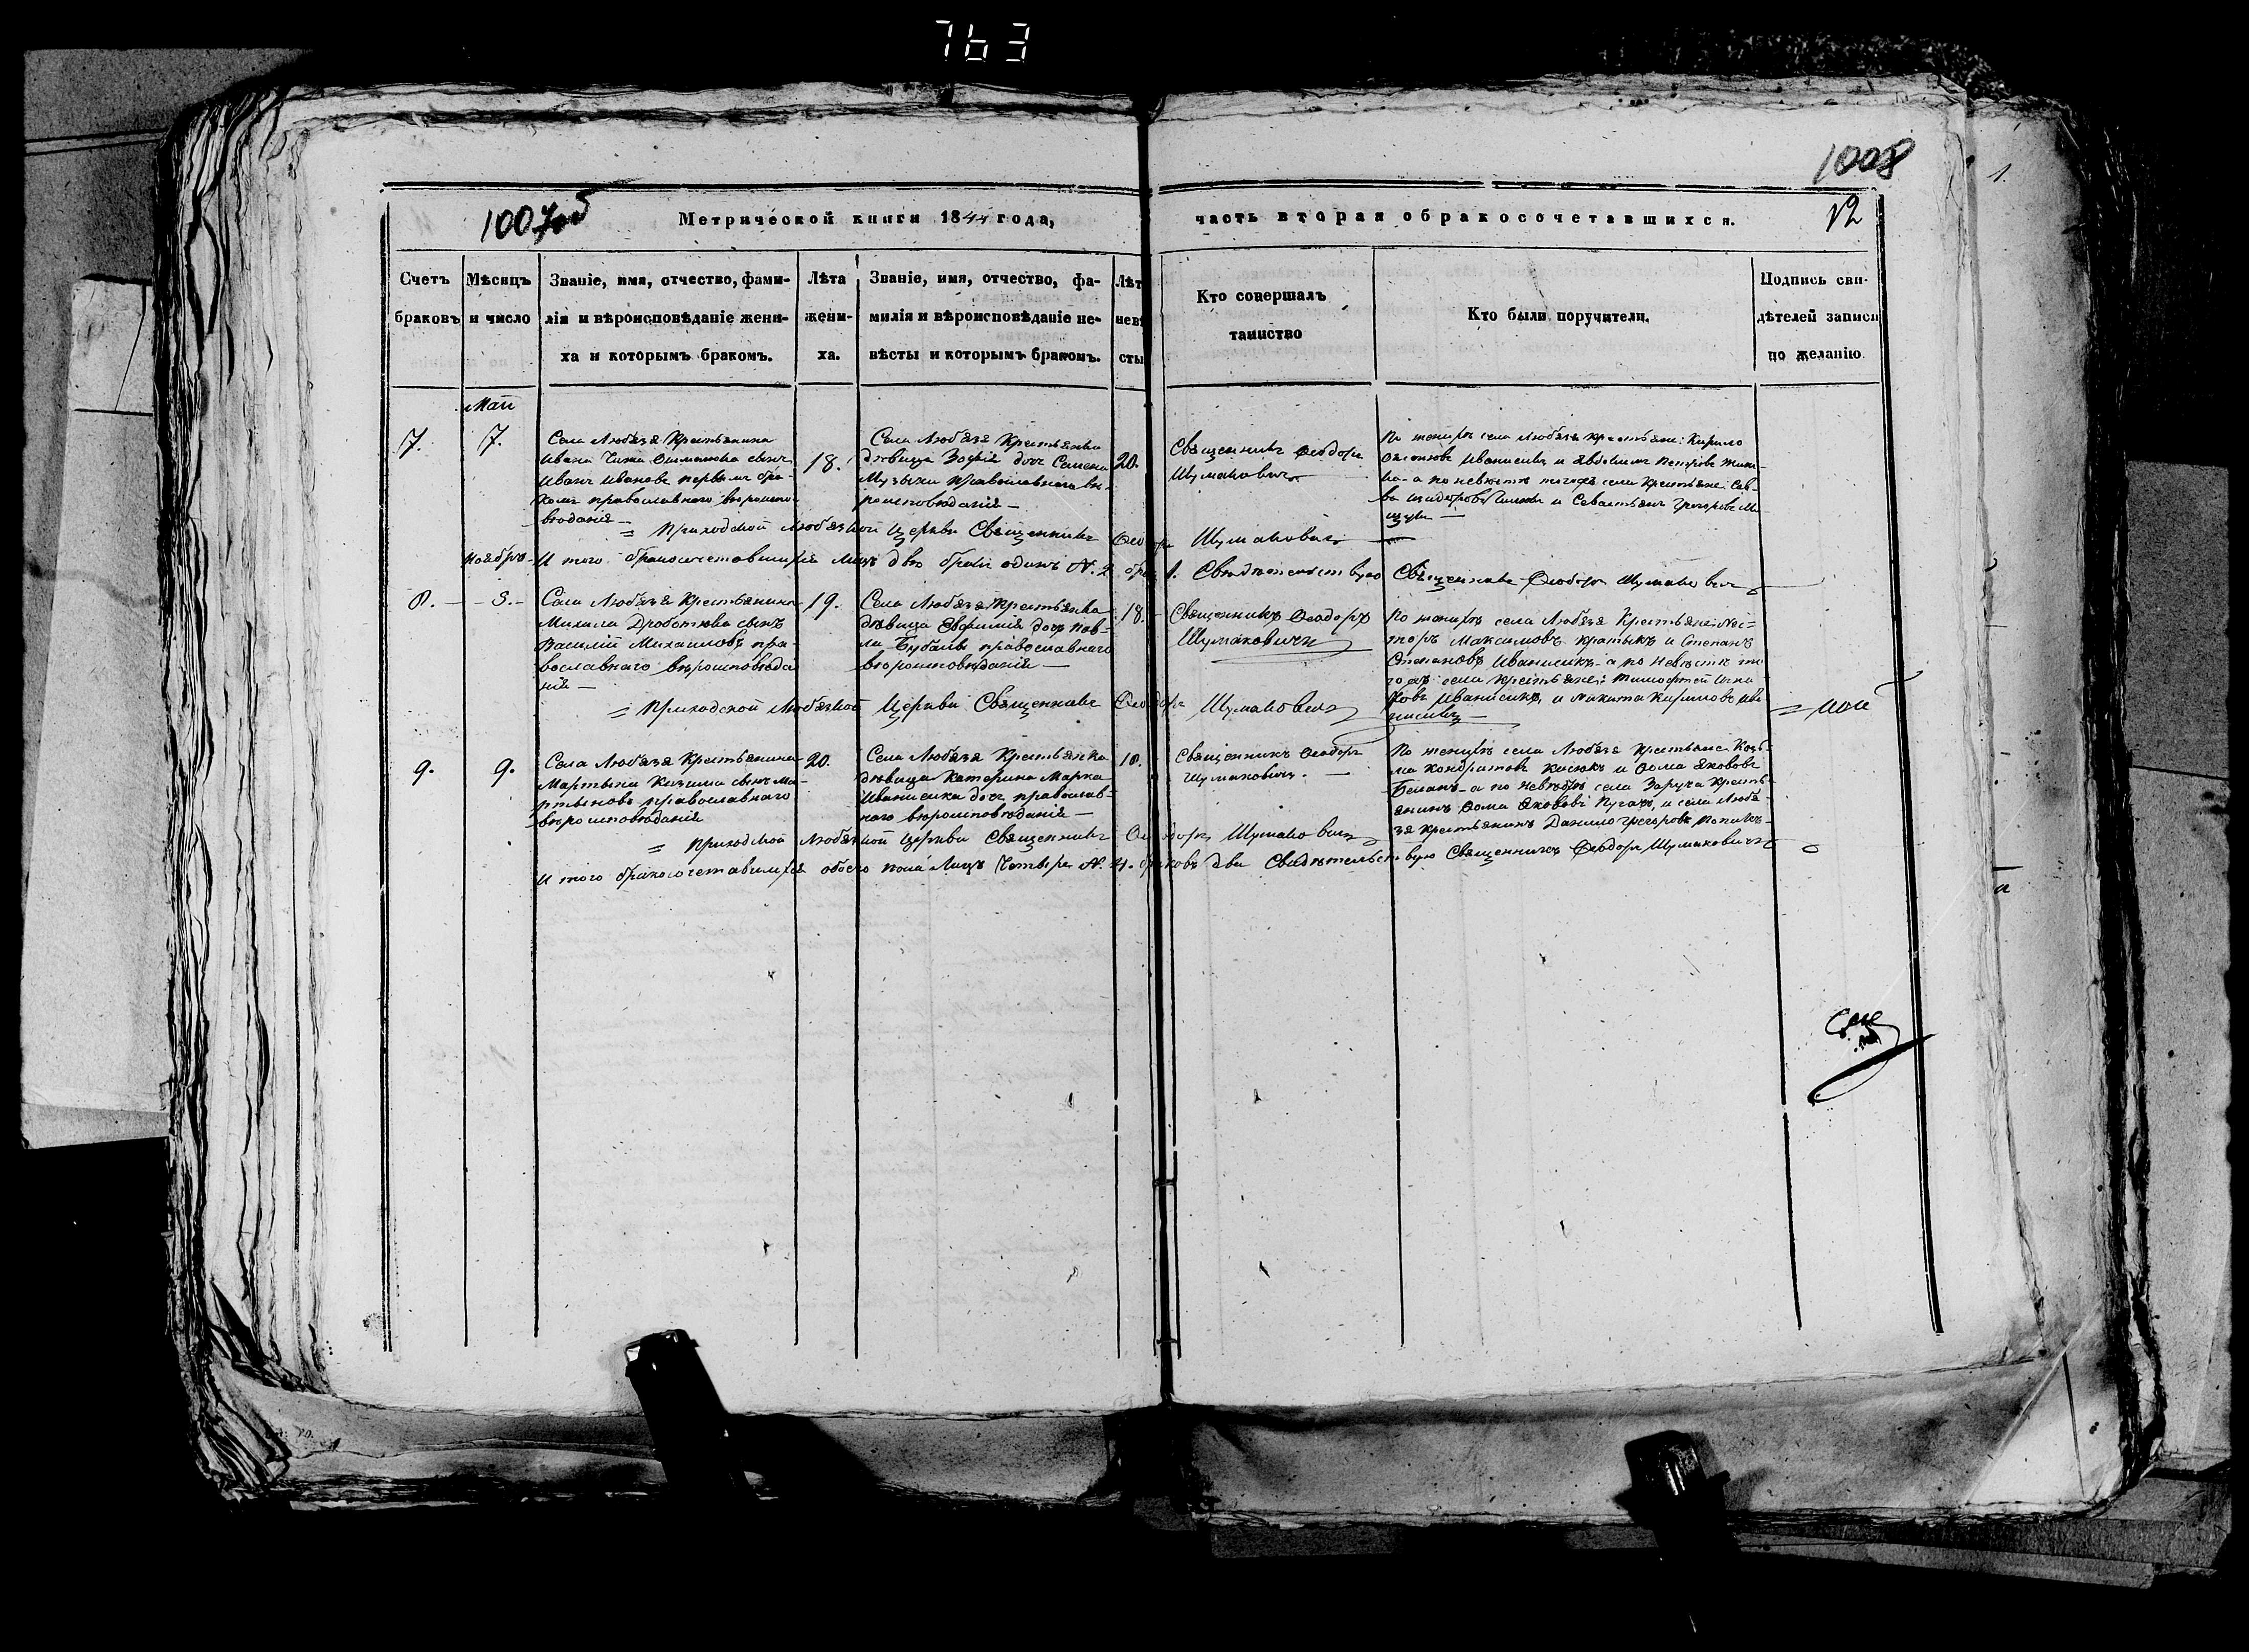 763
1008
1.
1007об
Метрической книги 1844 года,
часть вторая о бракосочетавшихся.
12
Счетъ браковъ
Мѣсяцъ и число
Званіе, имя, отчество, фами-
лія и вѣроисповѣданіе жени-
ха и которымъ бракомъ.
Лѣта
жени-
ха.
Званіе, имя, отчество, фа-
милія и вѣроисповѣданіе не-
вѣсты и которымъ бракомъ.
Лѣт
невѣ
сты
Кто совершалъ
таинство
Кто были поручители.
Подпись сви-
дѣтелей записи
по желанію.
Маи
7.
7.
Села Любязя Крестьянина
Ивана сынъ
Иванъ Ивановъ первымъ бра-
комъ православнаго вѣроиспо-
вѣданія —
18.
Села Любязя Крестьянка
дѣвица Зофія дочь Семена
Музычки православнаго вѣ-
роисповѣданія —
20.
Священникъ Ѳеодоръ
Шумаковичъ
По женихѣ села Любязя крестьяне: Кирило
Иванисикъ и Петровъ
на - а по невѣстѣ тогожъ села Крестьяне: Сав-
ва и Севастьянъ Григоровъ Ми
= Приходской Любязкой Церкви Священникъ Ѳеодоръ Шумаковичъ —
Ноябрь
И того бракосочетавшихся лицъ двѣ бракъ одинъ N. 2 бракъ 1. Свидѣтельствую Священникъ Ѳеодоръ Шумаковичъ
8. —
— 3. —
Села Любязя Крестьянина
Михаила сынъ
Василій Михаиловъ пра-
вославнаго вѣроисповѣда
нія —
19.
Села Любязя Крестьянка
дѣвица Евфимія дочь Пав-
ла Бубалы православнаго
вѣроисповѣданія —
18.
Священникъ Ѳеодоръ
Шумаковичъ
По женихѣ села Любязя Крестьяне: Нес-
торъ Максимовъ Кратыкъ и Степанъ
Степановъ Иванисикъ - а по невѣстѣ то
гожъ села Крестьяне: Тимофей Игна
товъ Иванисикъ, и Никита Кириловъ Ива
нисикъ —
= Приходской Любязкой Церкви Священникъ Ѳеодоръ Шумаковичъ
9.
9.
Села Любязя Крестьянина
Мартына сынъ Ма-
ртыновъ православнаго
вѣроисповѣданія
20.
Села Любязя Крестьянка
дѣвица Катерина Марка
Иванисика дочь православ-
наго вѣроисповѣданія —
18.
Священникъ Ѳеодоръ
Шумаковичъ. —
По женихѣ села Любязя Крестьяне Козь-
ма Кондратовъ Касюкъ и Ѳома Якововъ
- а по невѣстѣ села Заруча Кресть-
янинъ Ѳома Якововъ Пугачъ, и села Любя-
зя крестьянинъ Данило Григоровъ
= Приходской Любязкой Церкви Священникъ Ѳеодоръ Шумаковичъ
И того бракосочетавшихся обоего пола Лицъ Четыре N. 4. браковъ два Свидѣтельствую Священникъ Ѳеодоръ Шумаковичъ